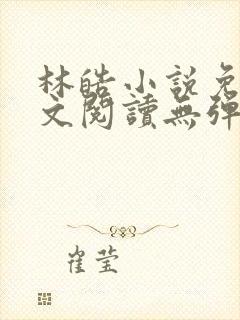 林皓小説免
文閱讀無彈
崔莹